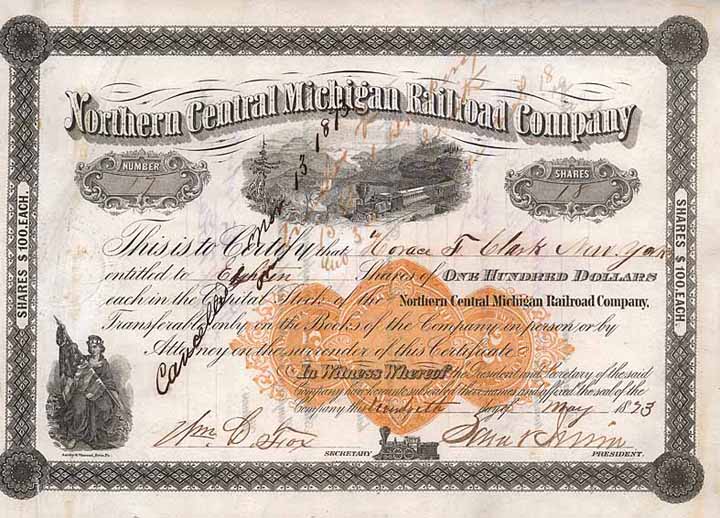 Northern Central Michigan Railroad Company
NUMBER
77
SHARES
18
SHARES $100. EACH.
SHARES $100. EACH.
This is to Certify that Horace F. Clark New York
entitled to Eighteen Shares of ONE HUNDRED DOLLARS
each in the Capital Stock of the Northern Central Michigan Railroad Company,
Transferable only on the Books of the Company in person or by
Attorney on the surrender of this Certificate.
In Witness Whereof the President and Secretary of the said
Company have hereunto subscribed their names and affixed the seal of the
Company this day of May 1873
Wm. C. Fox
SECRETARY
PRESIDENT.
Cancelled Nov 13 1875